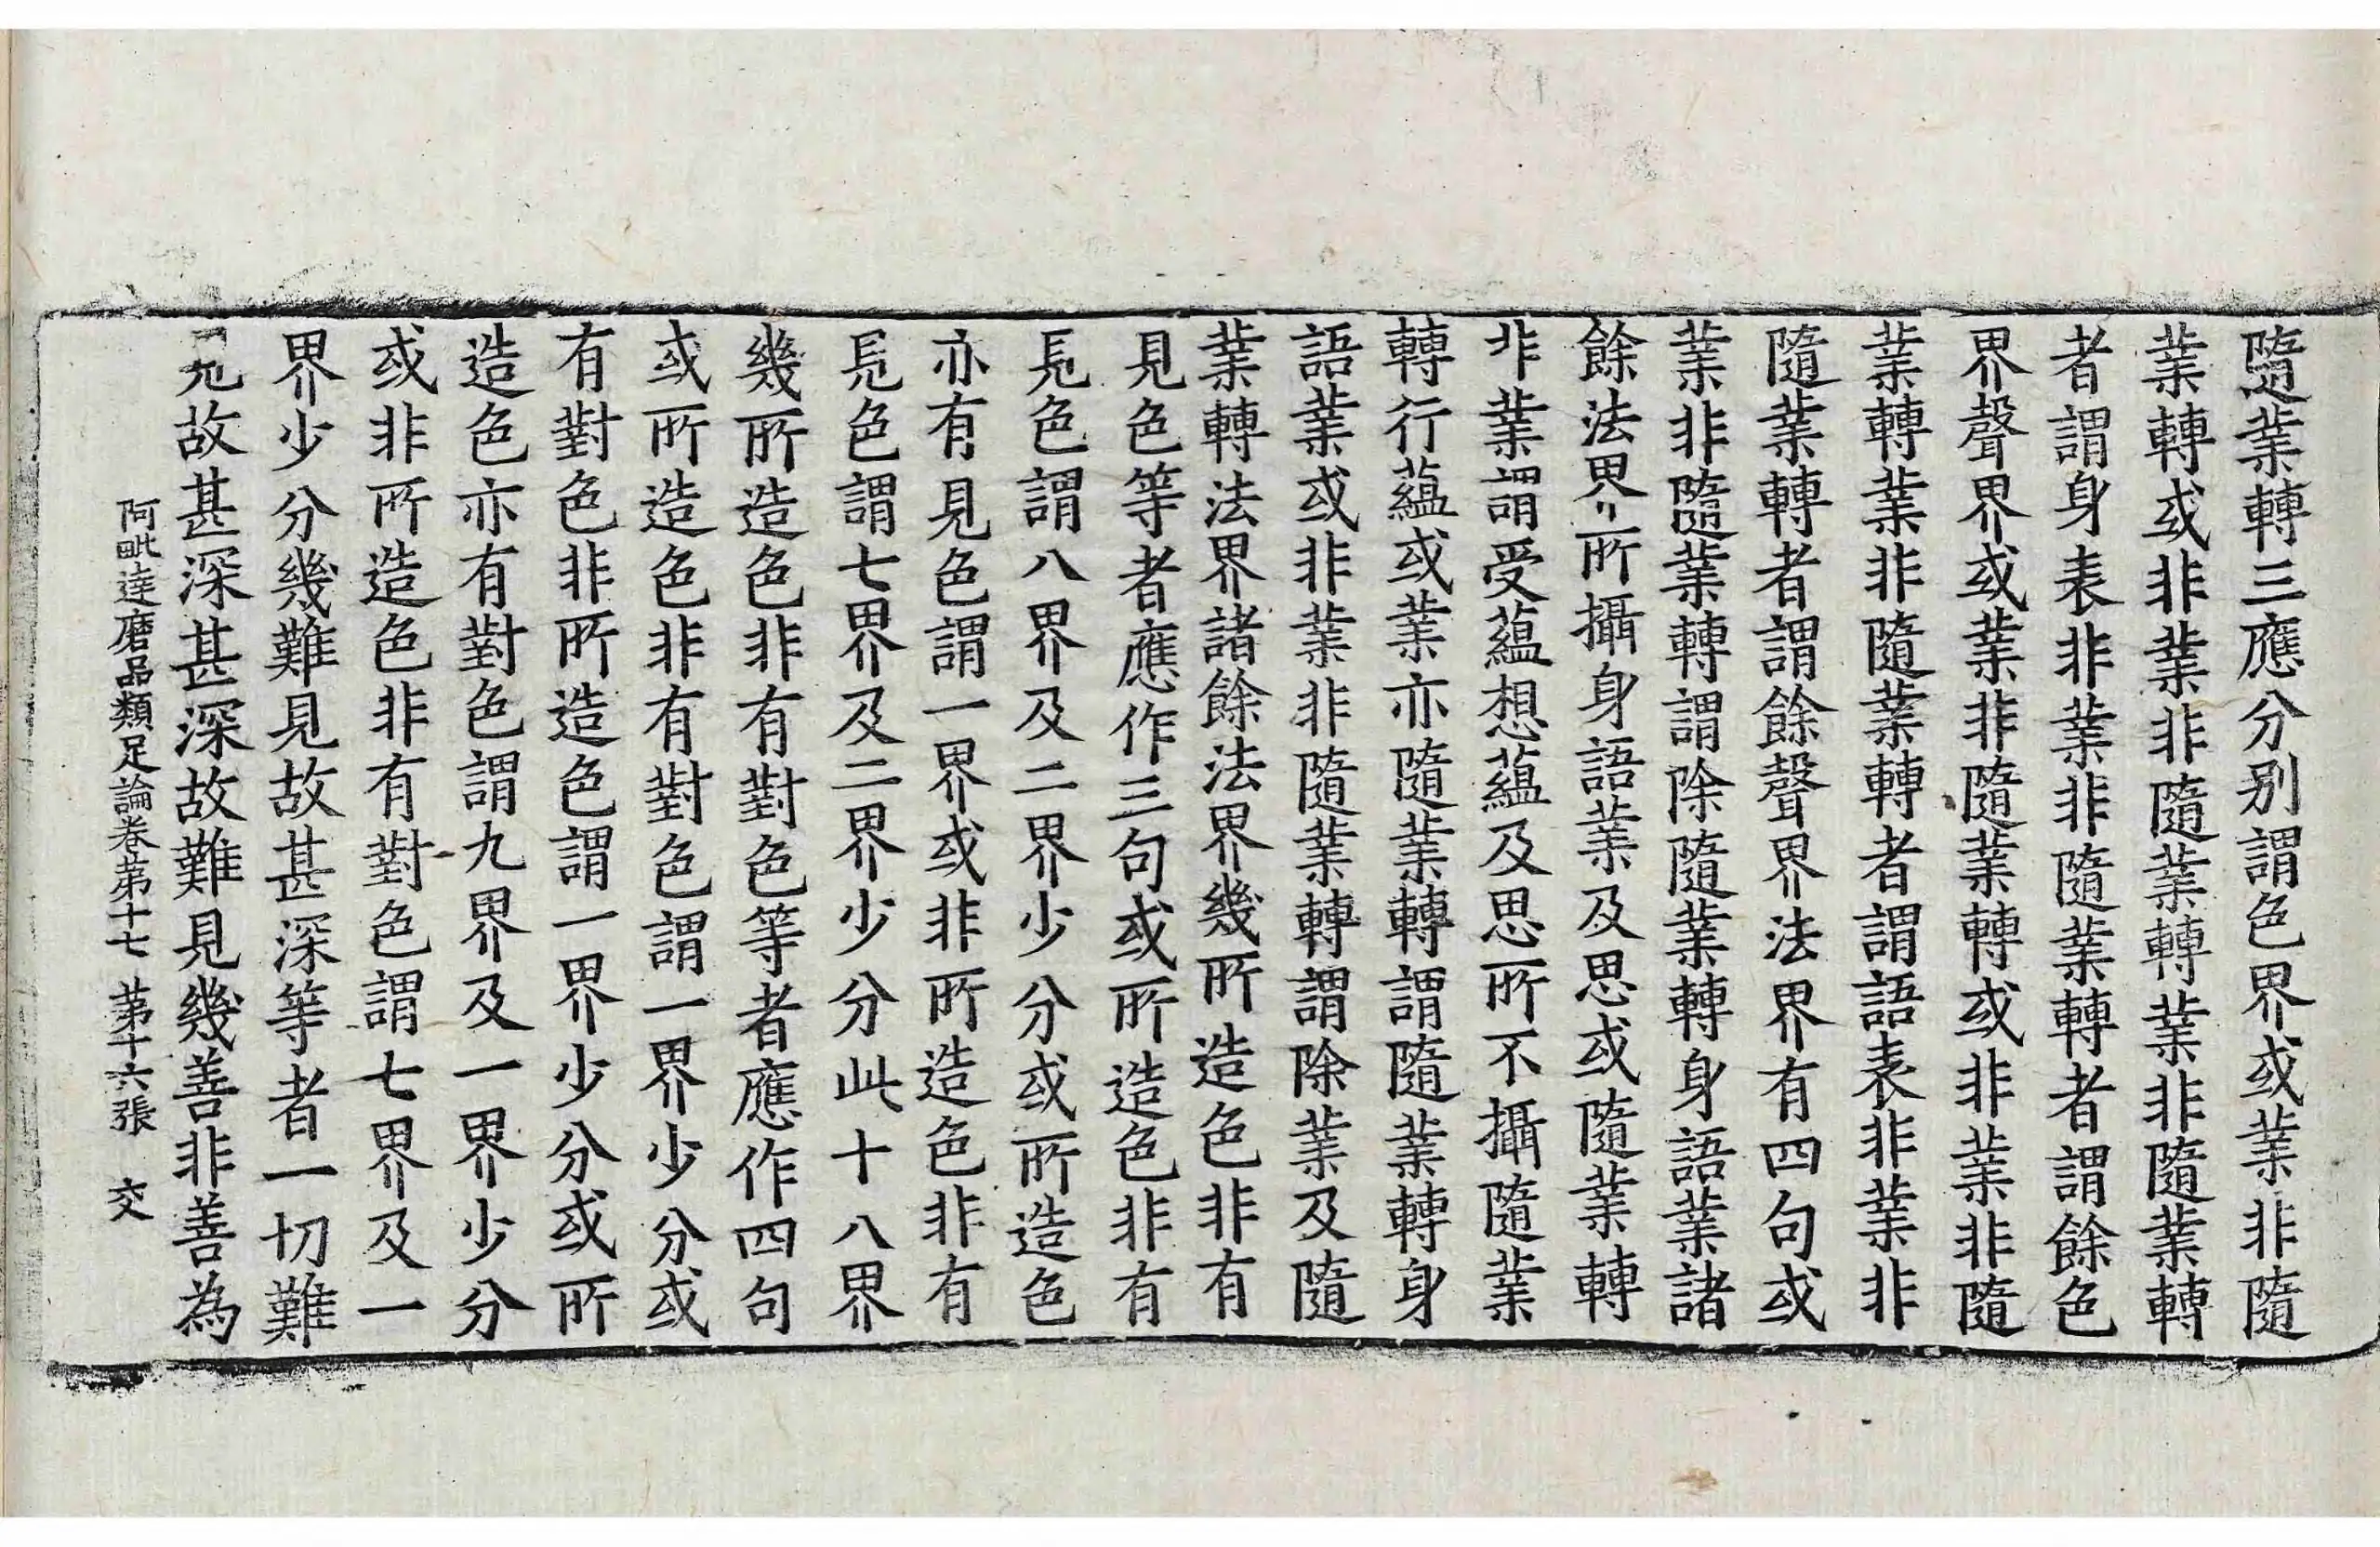 隨業轉三應分别謂色界或業非隨
業轉或非業非隨業轉業非隨業轉
者謂身表非業非隨業轉者謂餘色
界聲界或業非隨業轉或非業非隨
業轉業非隨業轉者謂語表非業非
隨業轉者謂餘聲界法界有四句或
業非隨業轉謂除隨業轉身語業諸
餘法界所攝身語業及思或隨業轉
非業謂受蘊想蘊及思所不攝隨業
轉行蘊或業亦隨業轉謂隨業轉身
語業或非業非隨業轉謂除業及隨
業轉法界諸餘法界幾所造色非有
見色等者應作三句或所造色非有
見色謂八界及二界少分或所造色
亦有見色謂一界或非所造色非有
見色謂七界及二界少分此十八界
幾所造色非有對色等者應作四句
或所造色非有對色謂一界少分或
有對色非所造色謂一界少分或所
造色亦有對色謂九界及一界少分
或非所造色非有對色謂七界及一
界少分幾難見故甚深等者一切難
見故甚深甚深故難見幾善非善為
阿毗達磨品類足論卷第十七 第十六張 交